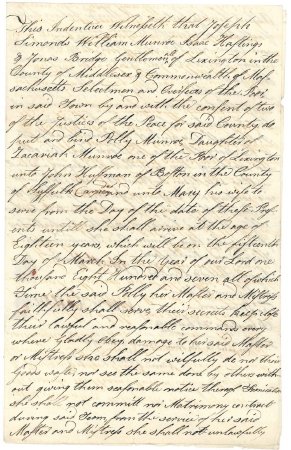 This Indenture Witnesseth that Joseph
Simonds William Munroe Isaac Hastings
& Jonas Bridge Gentlemen of Lexington in the
County of Middlesex & Commonwealth of Mas-
sachusetts Selectmen and Overseers of the Poor
in said Town by and with the consent of two
of the Justices of the Peace for said County do
put and bind Polly Munroe Daughter of
Zacariah Munroe one of the Poor of Lexington
unto John of Boston in the County
of Suffolk and unto Mary his wife to
serve from the Day of the date of these Pres-
ents until she shall arive at the age of
Eighteen years, which will be on the fifteenth
Day of March In the Year of our Lord one
thousand Eight Hundred and seven, all of which
Time, the said Polly her Master and Mistress
faithfully shall serve, their secrets keep, & obey
their lawful and reasonable commands every
where Gladly obey, damage to her said Master
or Mistress she shall not wilfully do nor their
Goods waste, nor see the same done by others with
out giving them reasonable notice thereof. Fornication
she shall not committ nor Matrimony contract
during said Term, from the service of her said
Master and Mistress she shall not unlawfully